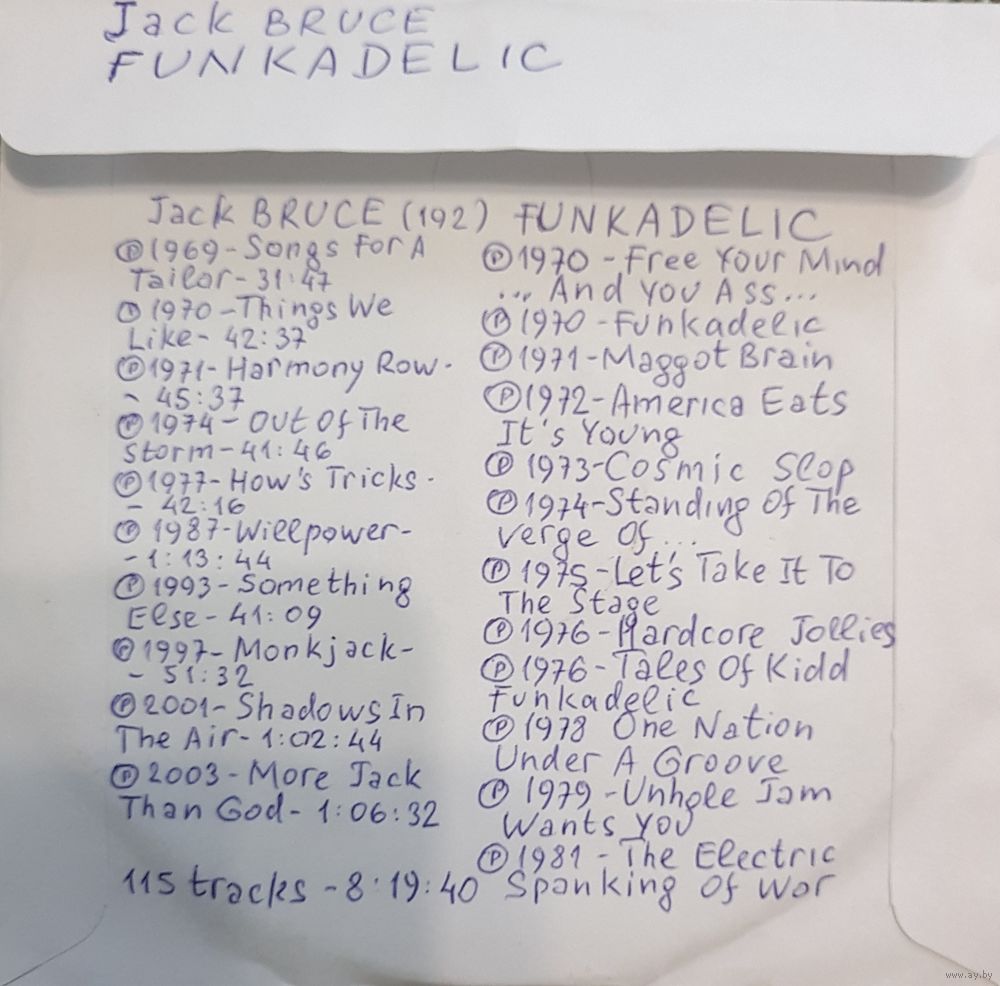 Jack BRUCE
FUNKADELIC
Jack BRUCE (192)
℗1969-Songs For A
Tailor-31:47
℗1970-Things We
Like-42:37
℗1971-Harmony Row-
-45:37
℗1974-Out Of The
Storm-41:46
℗1977-How's Tricks-
-42:16
℗1987-Willpower-
-1:13:44
℗1993-Something
Else-41:09
℗1997-Monkjack-
-51:32
℗2001-Shadows In
The Air-1:02:44
℗2003-More Jack
Than God-1:06:32
115 tracks-8:19:40
FUNKADELIC
℗1970-Free Your Mind
... And You Ass...
℗1970-Funkadelic
℗1971-Maggot Brain
℗1972-America Eats
It's Young
℗1973-Cosmic Slop
℗1974-Standing Of The
Verge Of...
℗1975-Let's Take It To
The Stage
℗1976-Hardcore Jollies
℗1976-Tales Of Kidd
Funkadelic
℗1978 One Nation
Under A Groove
℗1979-Unhole Jam
Wants You
℗1981-The Electric
Spanking Of War
www.ay.by